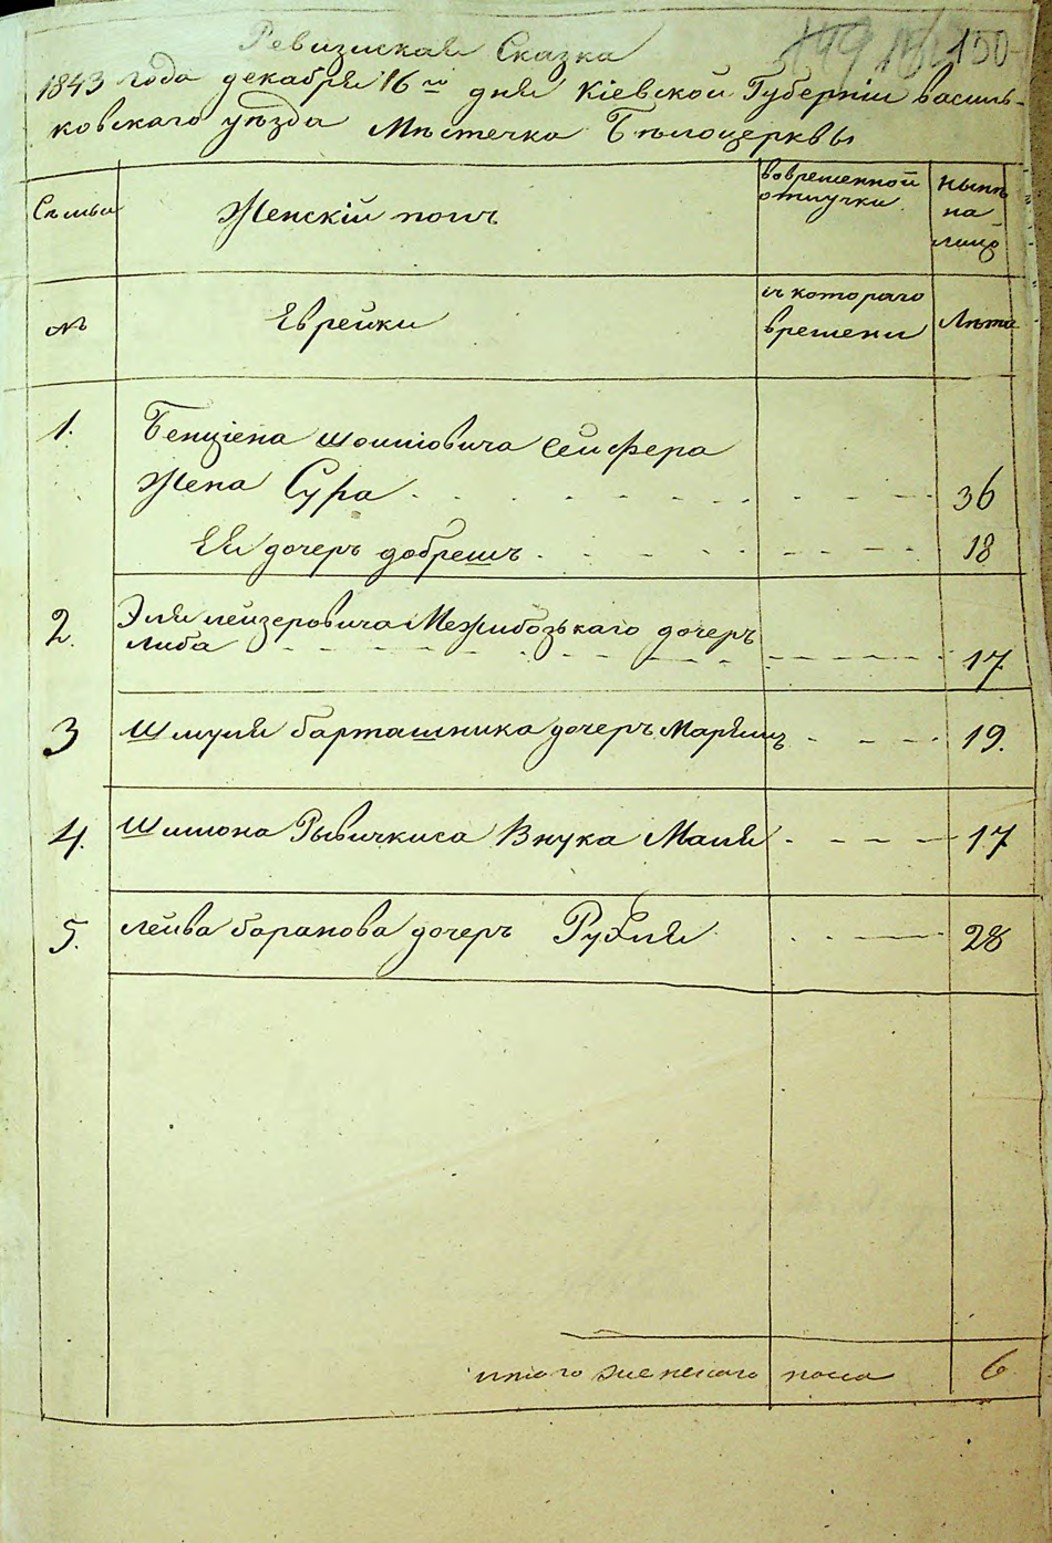 Ревизская Сказка 150
1843 года декабря 16го дня Кіевской Губерніи василь-
ковскаго уѣзда Мѣстечка Бѣлоцерквы
Семьи Женскій полъ вовременной отлучки Нынѣ на-лицо
№ Еврейки съ котораго времени Лѣта
1. Бенціена шоиліовича сейфера
Жена Сура 36
Ея дочеръ добрешъ 18
2. Эля лейзеровича Межибозькаго дочеръ
либа 17
3 Шмуля барташника дочеръ Маріямъ 19.
4. Шимона Рывичкиса Внука Маля 17
5. лейва баранова дочеръ Рухля 28
итого женскаго пола 6